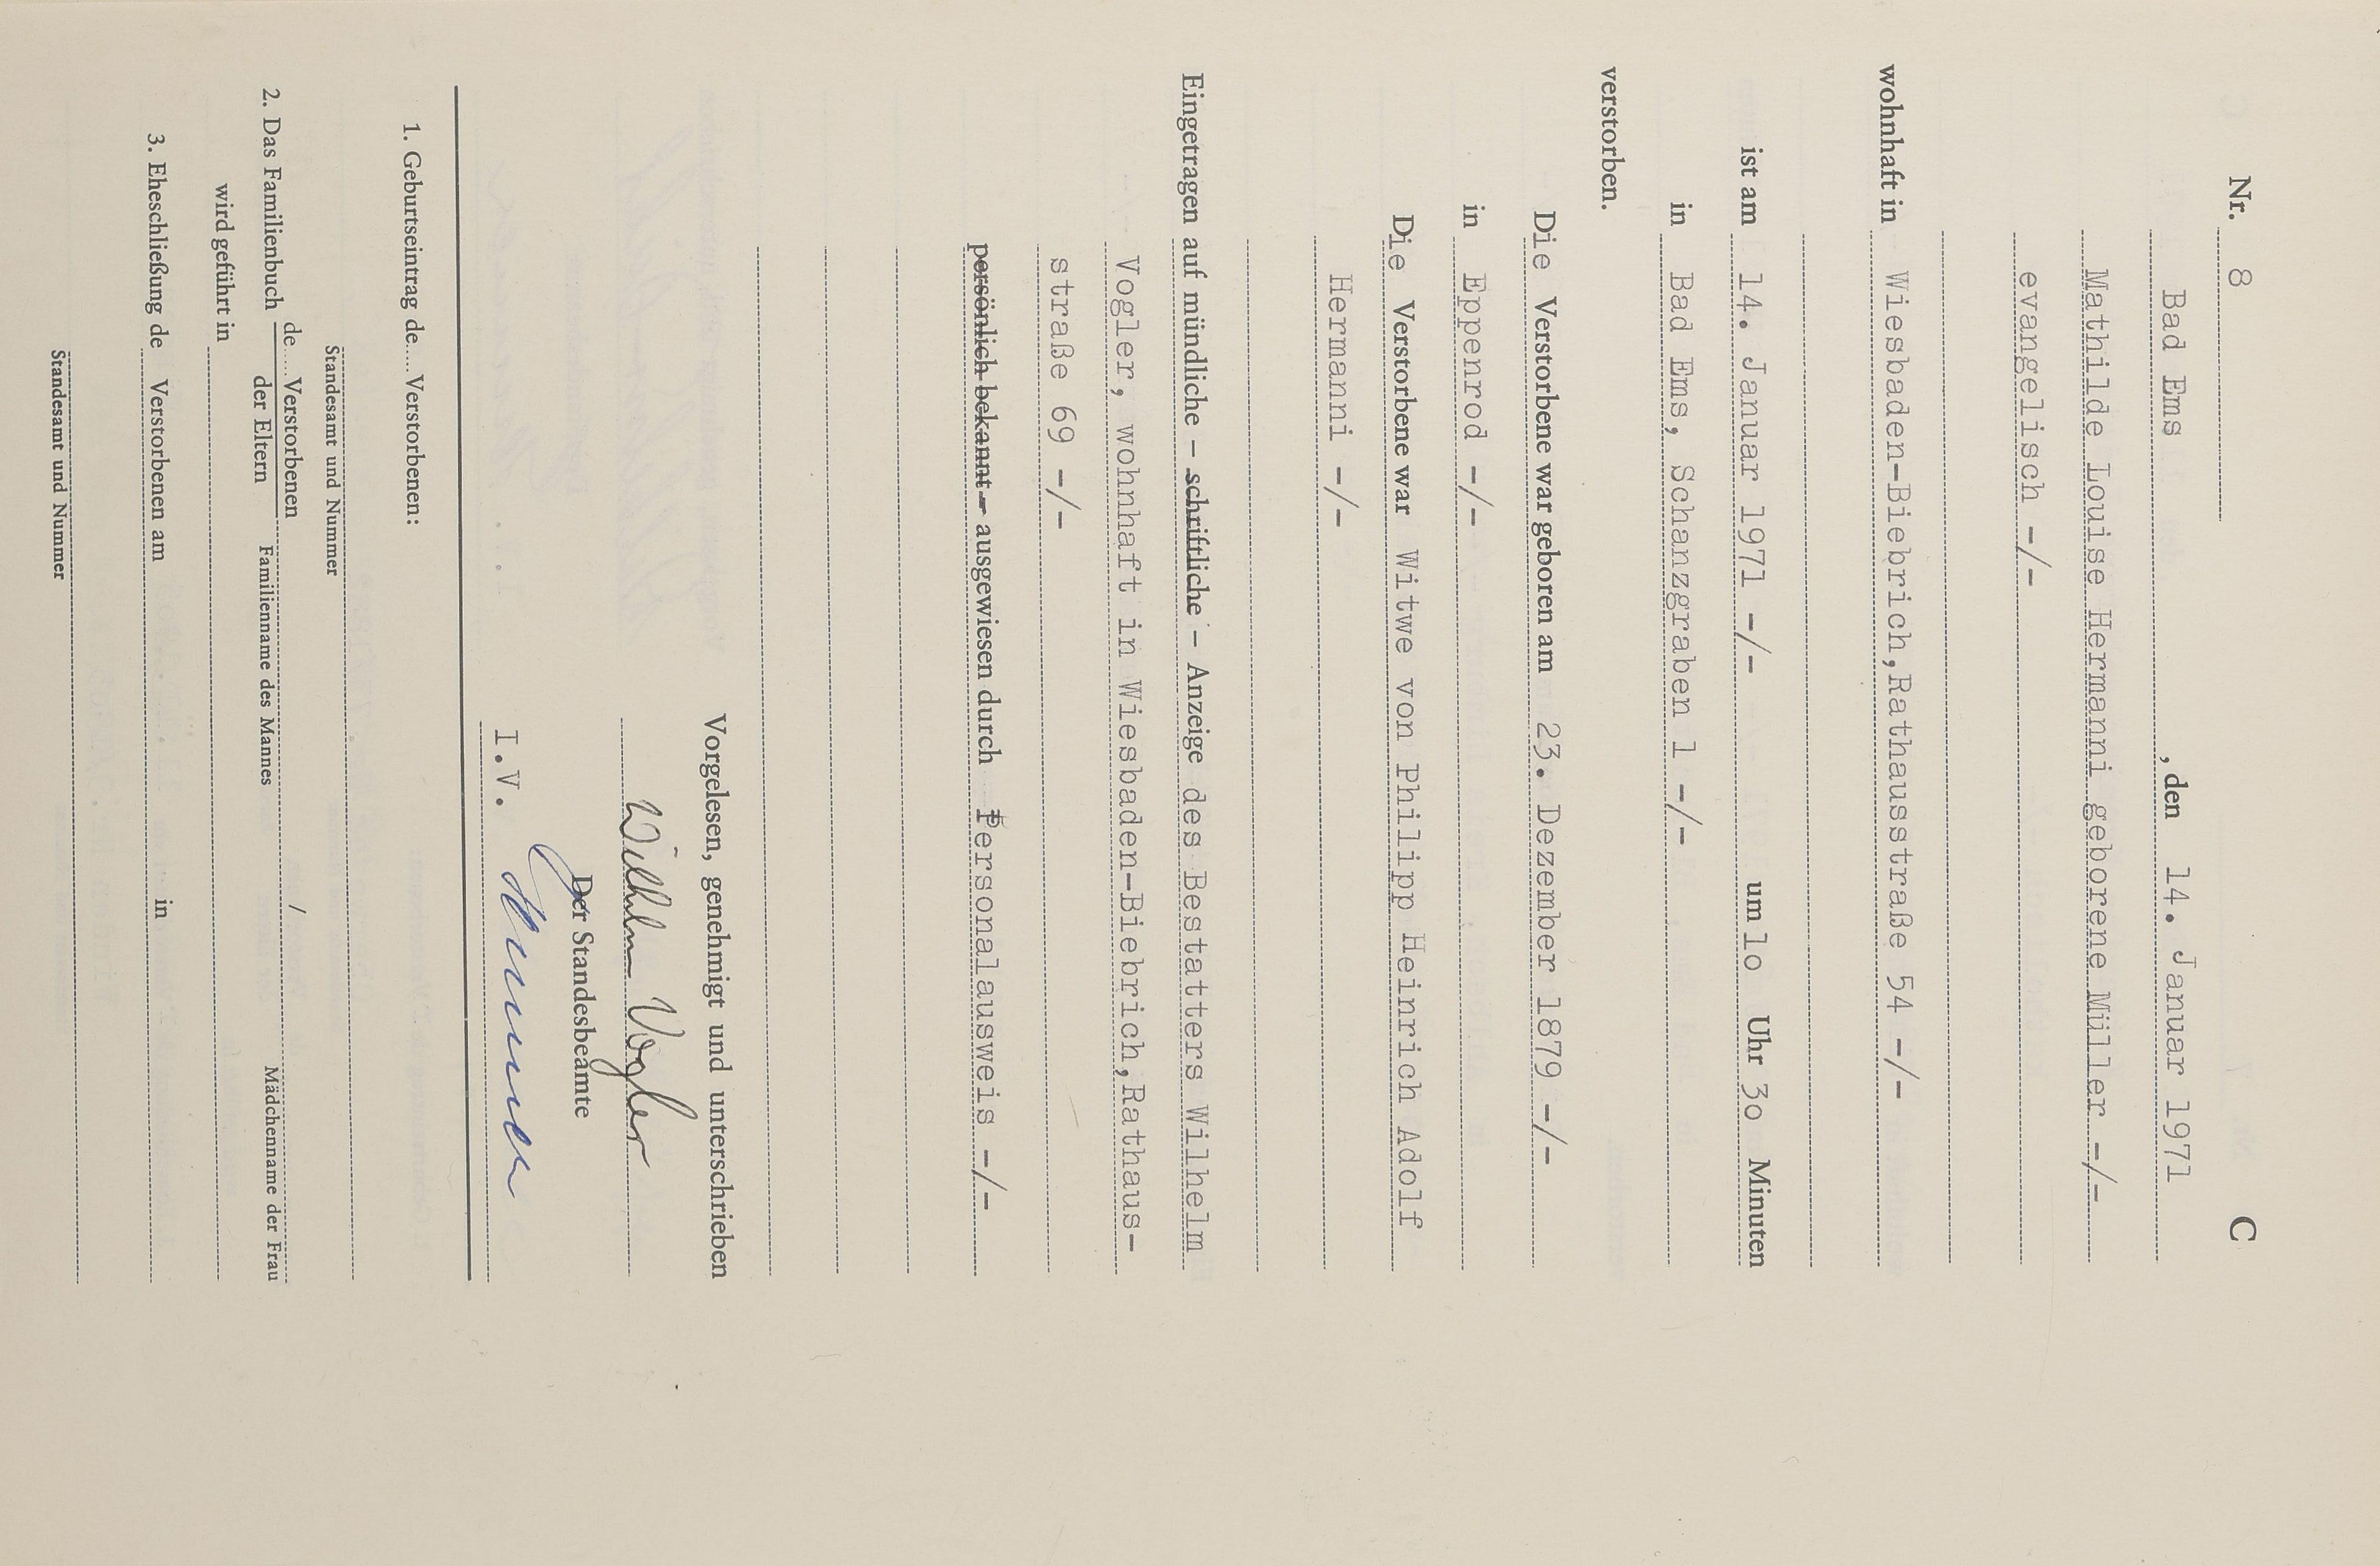 Nr. 8 C
Bad Ems , den 14. Januar 1971
Mathilde Louise Hermanni geborene Müller -/-
evangelisch -/-
wohnhaft in Wiesbaden-Biebrich,Rathausstraße 54 -/-
ist am 14. Januar 1971 -/- um lo Uhr 3o Minuten
in Bad Ems, Schanzgraben 1 -/-
verstorben.
Die Verstorbene war geboren am 23. Dezember 1879 -/-
in Eppenrod -/-
Die Verstorbene war Witwe von Philipp Heinrich Adolf
Hermanni -/-
Eingetragen auf mündliche – schriftliche – Anzeige des Bestatters Wilhelm
Vogler, wohnhaft in Wiesbaden-Biebrich,Rathaus-
straße 69 -/-
persönlich bekannt – ausgewiesen durch Personalausweis -/-
Vorgelesen, genehmigt und unterschrieben
Wilhelm Vogler
Der Standesbeamte
I.V.
1. Geburtseintrag de....Verstorbenen:
Standesamt und Nummer
2. Das Familienbuch de....Verstorbenen /
der Eltern Familienname des Mannes Mädchenname der Frau
wird geführt in
3. Eheschließung de Verstorbenen am in
Standesamt und Nummer